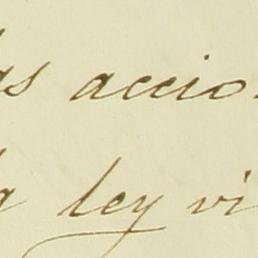 as accio
a ley vi